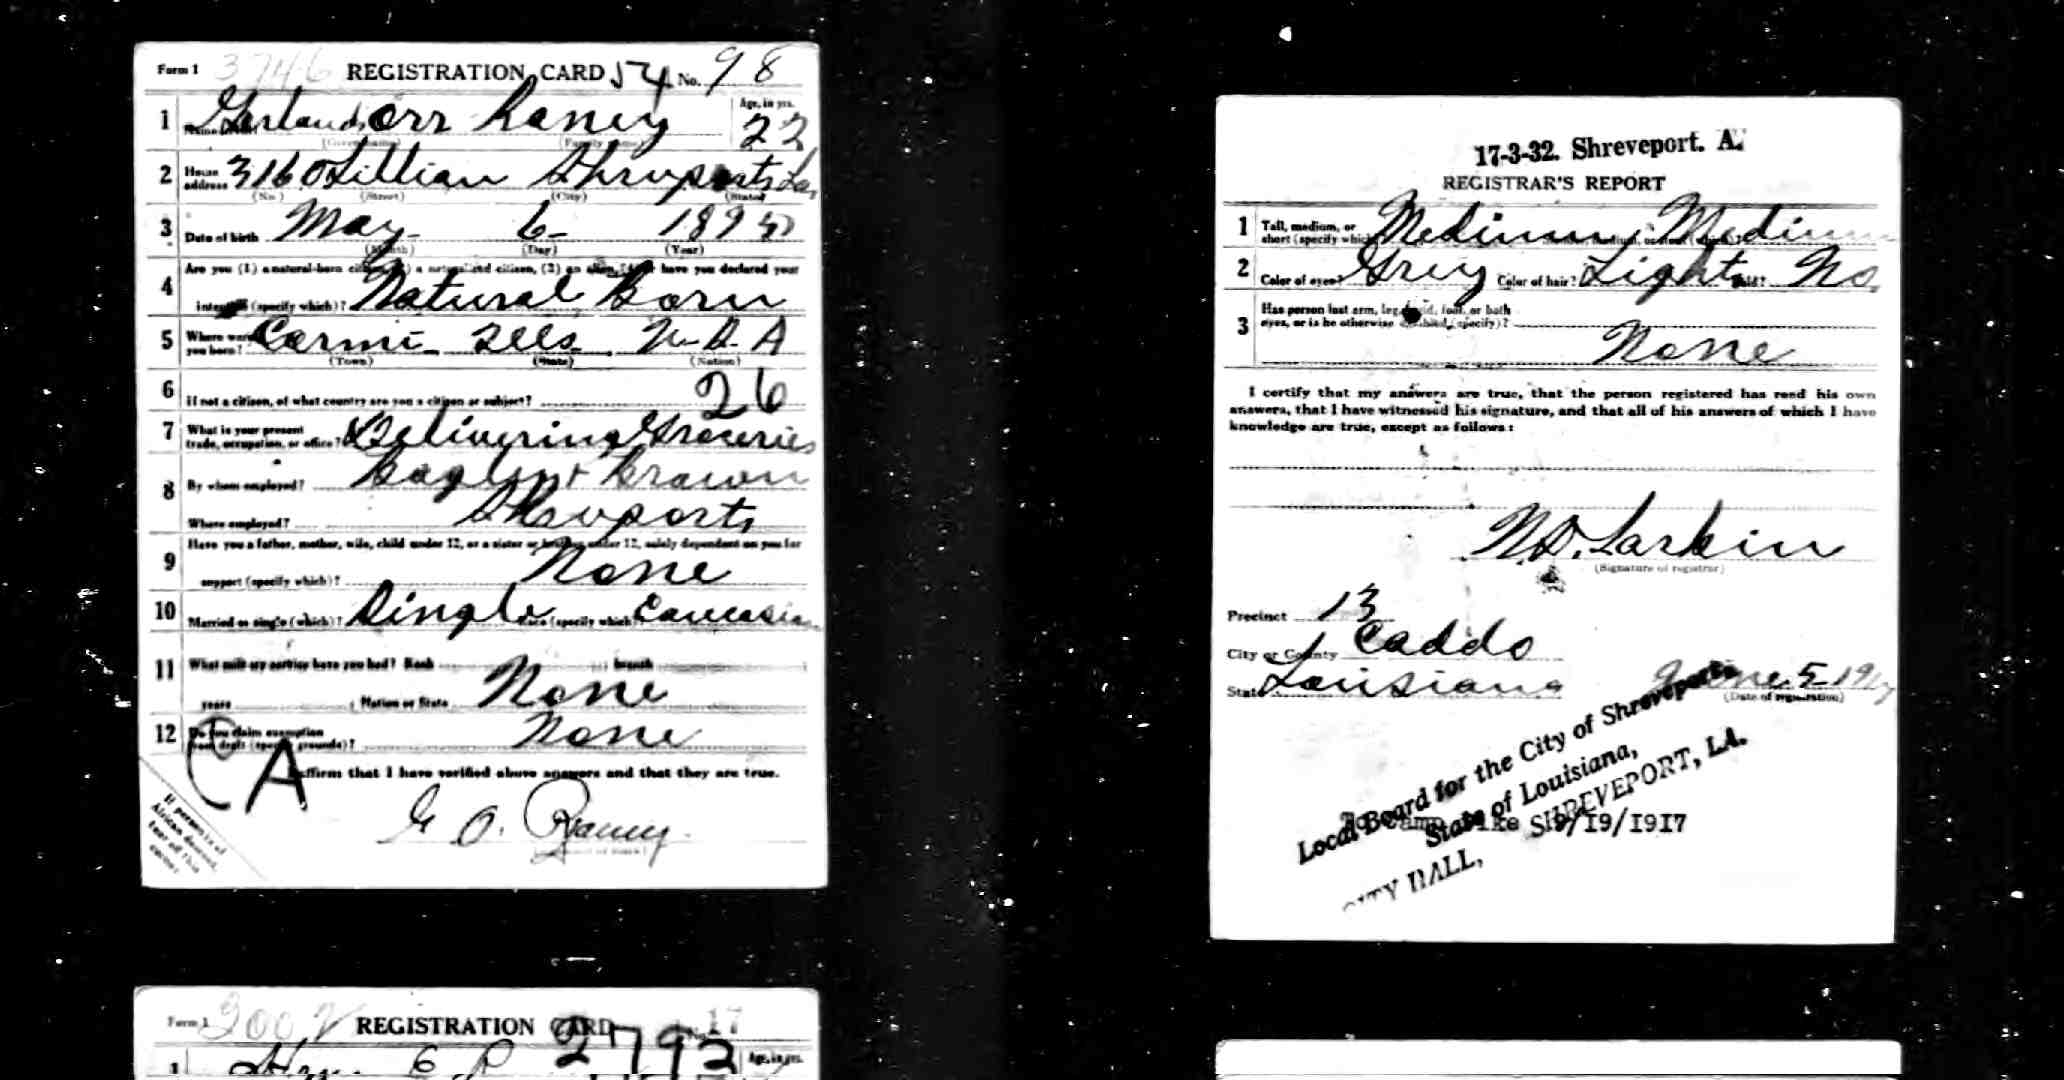 Form 1 3746 REGISTRATION CARD 54 No. 98
1 Gerland Orr Raney Age, in yrs. 22
(Given name) (Family name)
2 Home address 316 Lillian Shreveport La
(No.) (Street) (City) (State)
3 Date of birth May 6 1895
(Month) (Day) (Year)
4 Are you (1) a natural-born citizen, (2) a naturalized citizen, (3) an alien, (4) or have you declared your
intention (specify which)? Natural Born
5 Where were you born? Carmi Ills U.S.A
(Town) (State) (Nation)
6 If not a citizen, of what country are you a citizen or subject? 26
7 What is your present trade, occupation, or office? Delivering Groceries
8 By whom employed? & Brown
Where employed? Shreveport
9 Have you a father, mother, wife, child under 12, or a sister or brother under 12, solely dependent on you for
support (specify which)? None
10 Married or single (which)? Single Race (specify which)? Caucasian
11 What military service have you had? Rank branch
years Nation or State None
12 Do you claim exemption from draft (specify grounds)? None
A
I affirm that I have verified above answers and that they are true.
G O. Raney
If person is of
African descent,
tear off this
corner
Form 1 REGISTRATION CARD 17
2792
1 Age, in yrs.
17-3-32. Shreveport. A.
REGISTRAR'S REPORT
1 Tall, medium, or short (specify which)? Medium Medium
2 Color of eyes? Grey Color of hair? Light Bald? No.
3 Has person lost arm, leg, hand, foot, or both
eyes, or is he otherwise disabled (specify)?
None
I certify that my answers are true, that the person registered has read his own
answers, that I have witnessed his signature, and that all of his answers of which I have
knowledge are true, except as follows:
W.D. Larkin
(Signature of registrar)
Precinct 13
City or County Caddo
State Louisiana June 5 1917
(Date of registration)
Local Board for the City of Shreveport
State of Louisiana,
To Camp Pike 9/19/1917
CITY HALL, SHREVEPORT, LA.